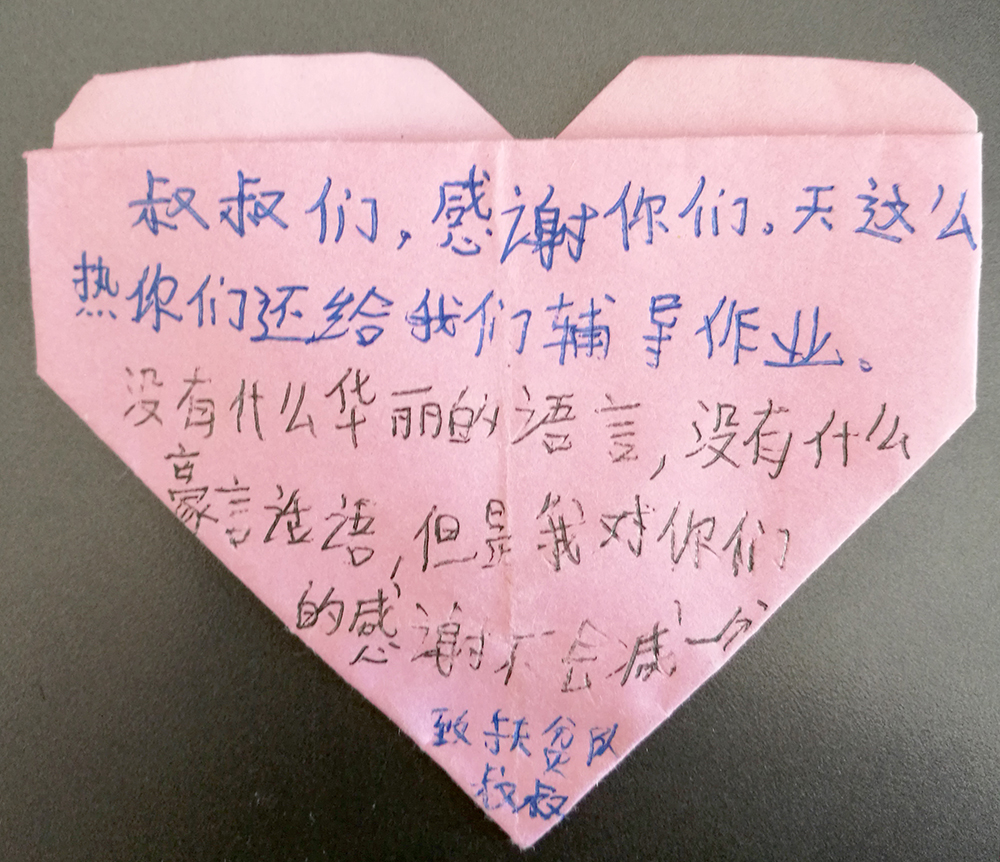 叔叔们,感谢你们。天这么
热你们还给我们辅导作业。
没有什么华丽的语言,没有什么
豪言话语,但是我对你们
的感谢不会减一分
致扶贫队
叔叔